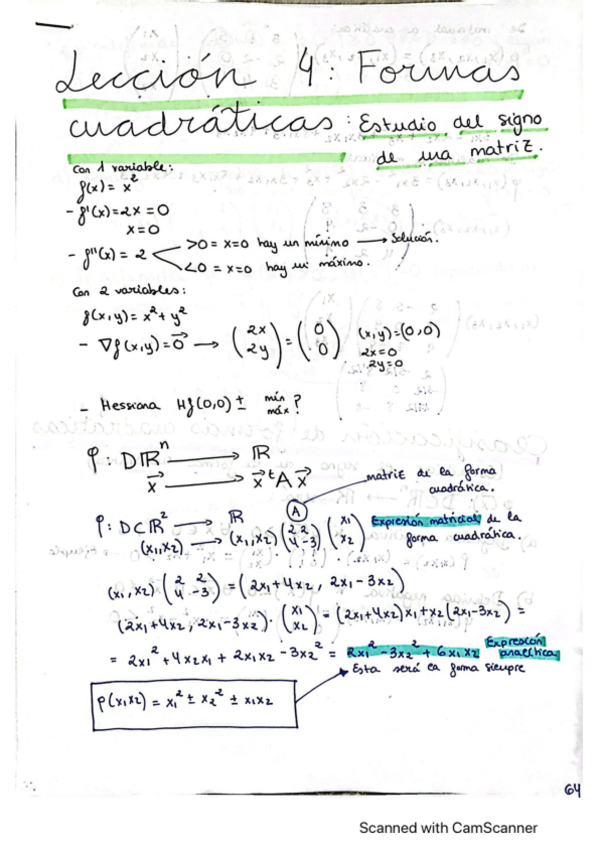 Lección 4: Formas
cuadráticas: Estudio del signo
de una matriz.
Con 1 variable:
f(x) = x²
- f'(x) = 2x = 0
x = 0
- f''(x) = 2
>0 = x=0 hay un mínimo → Solución.
<0 = x=0 hay un máximo.
Con 2 variables:
f(x,y) = x² + y²
- ∇f(x,y) = 0⃗ → (2x 2y) = (0 0) (x,y)=(0,0)
2x=0
2y=0
- Hessiana Hf(0,0) ± mín máx ?
φ: Dℝⁿ → ℝ
x⃗ → x⃗ᵗ A x⃗
matriz de la forma
cuadrática.
A
φ: D⊂ℝ² → ℝ
(x₁,x₂) → (x₁,x₂) (2 2 4 -3) (x₁ x₂)
Expresión matricial de la
forma cuadrática.
(x₁,x₂) · (2 2 4 -3) = (2x₁+4x₂, 2x₁-3x₂)
(2x₁+4x₂, 2x₁-3x₂) · (x₁ x₂) = (2x₁+4x₂)x₁+x₂(2x₁-3x₂) =
= 2x₁² + 4x₂x₁ + 2x₁x₂ - 3x₂² = 2x₁² - 3x₂² + 6x₁x₂ Expresión analítica
Esta será la forma siempre
φ(x₁x₂) = x₁² ± x₂² ± x₁x₂
64
Scanned with CamScanner